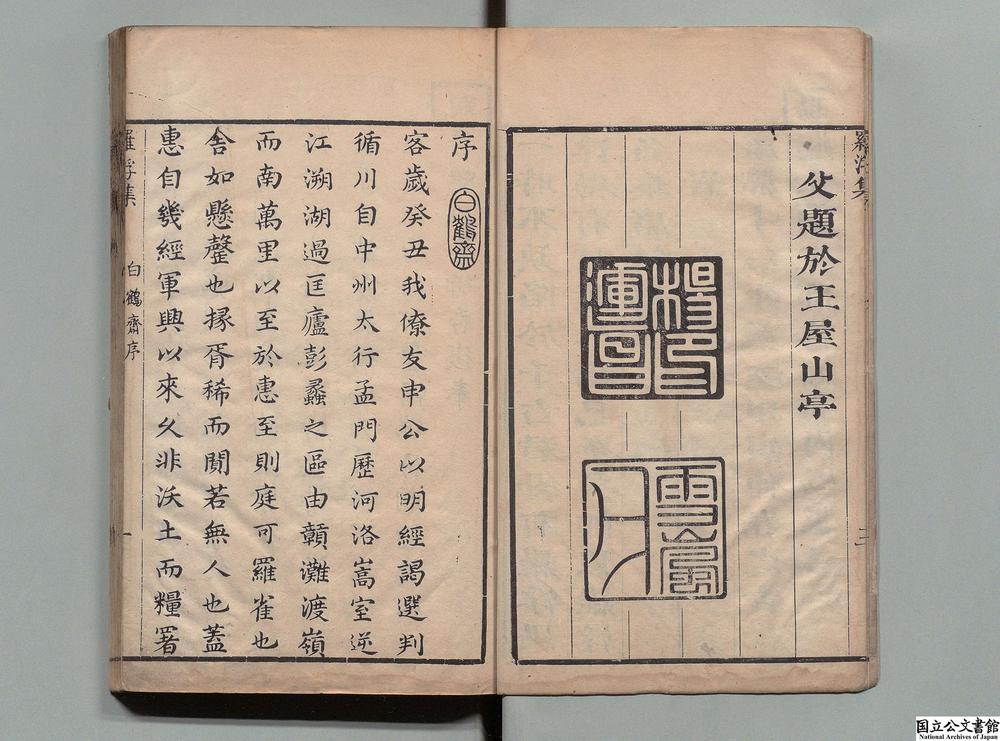 羅浮集
父題於王屋山亭
楊運昌印
三
序
白鶴齋
客歲癸丑我僚友申公以明經謁選判
循川自中州太行孟門歷河洛嵩室逆
江溯湖過匡廬彭蠡之區由贛灘渡嶺
而南萬里以至於惠至則庭可羅雀也
舍如懸罄也掾胥稀而閴若無人也蓋
惠自幾經軍興以來久非沃土而糧署
羅浮集
白鶴齋序
一
国立公文書館
National Archives of Japan